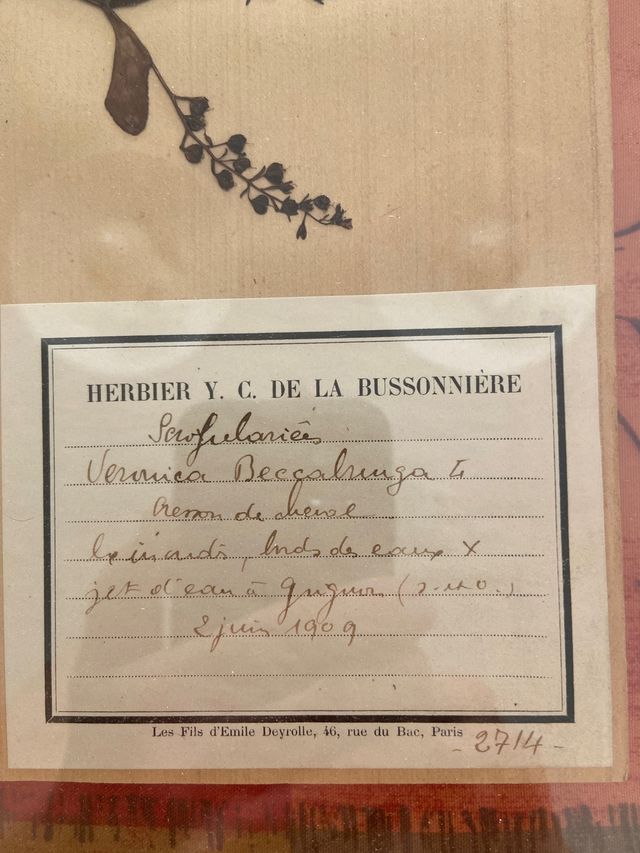 HERBIER Y. C. DE LA BUSSONNIÈRE
Scrofulariées
Veronica Beccabunga L
Cresson de cheval
bords des eaux X
jet d'eau à Grignon (S.-et-O.)
2 juin 1909
Les Fils d'Emile Deyrolle, 46, rue du Bac, Paris
- 2714 -